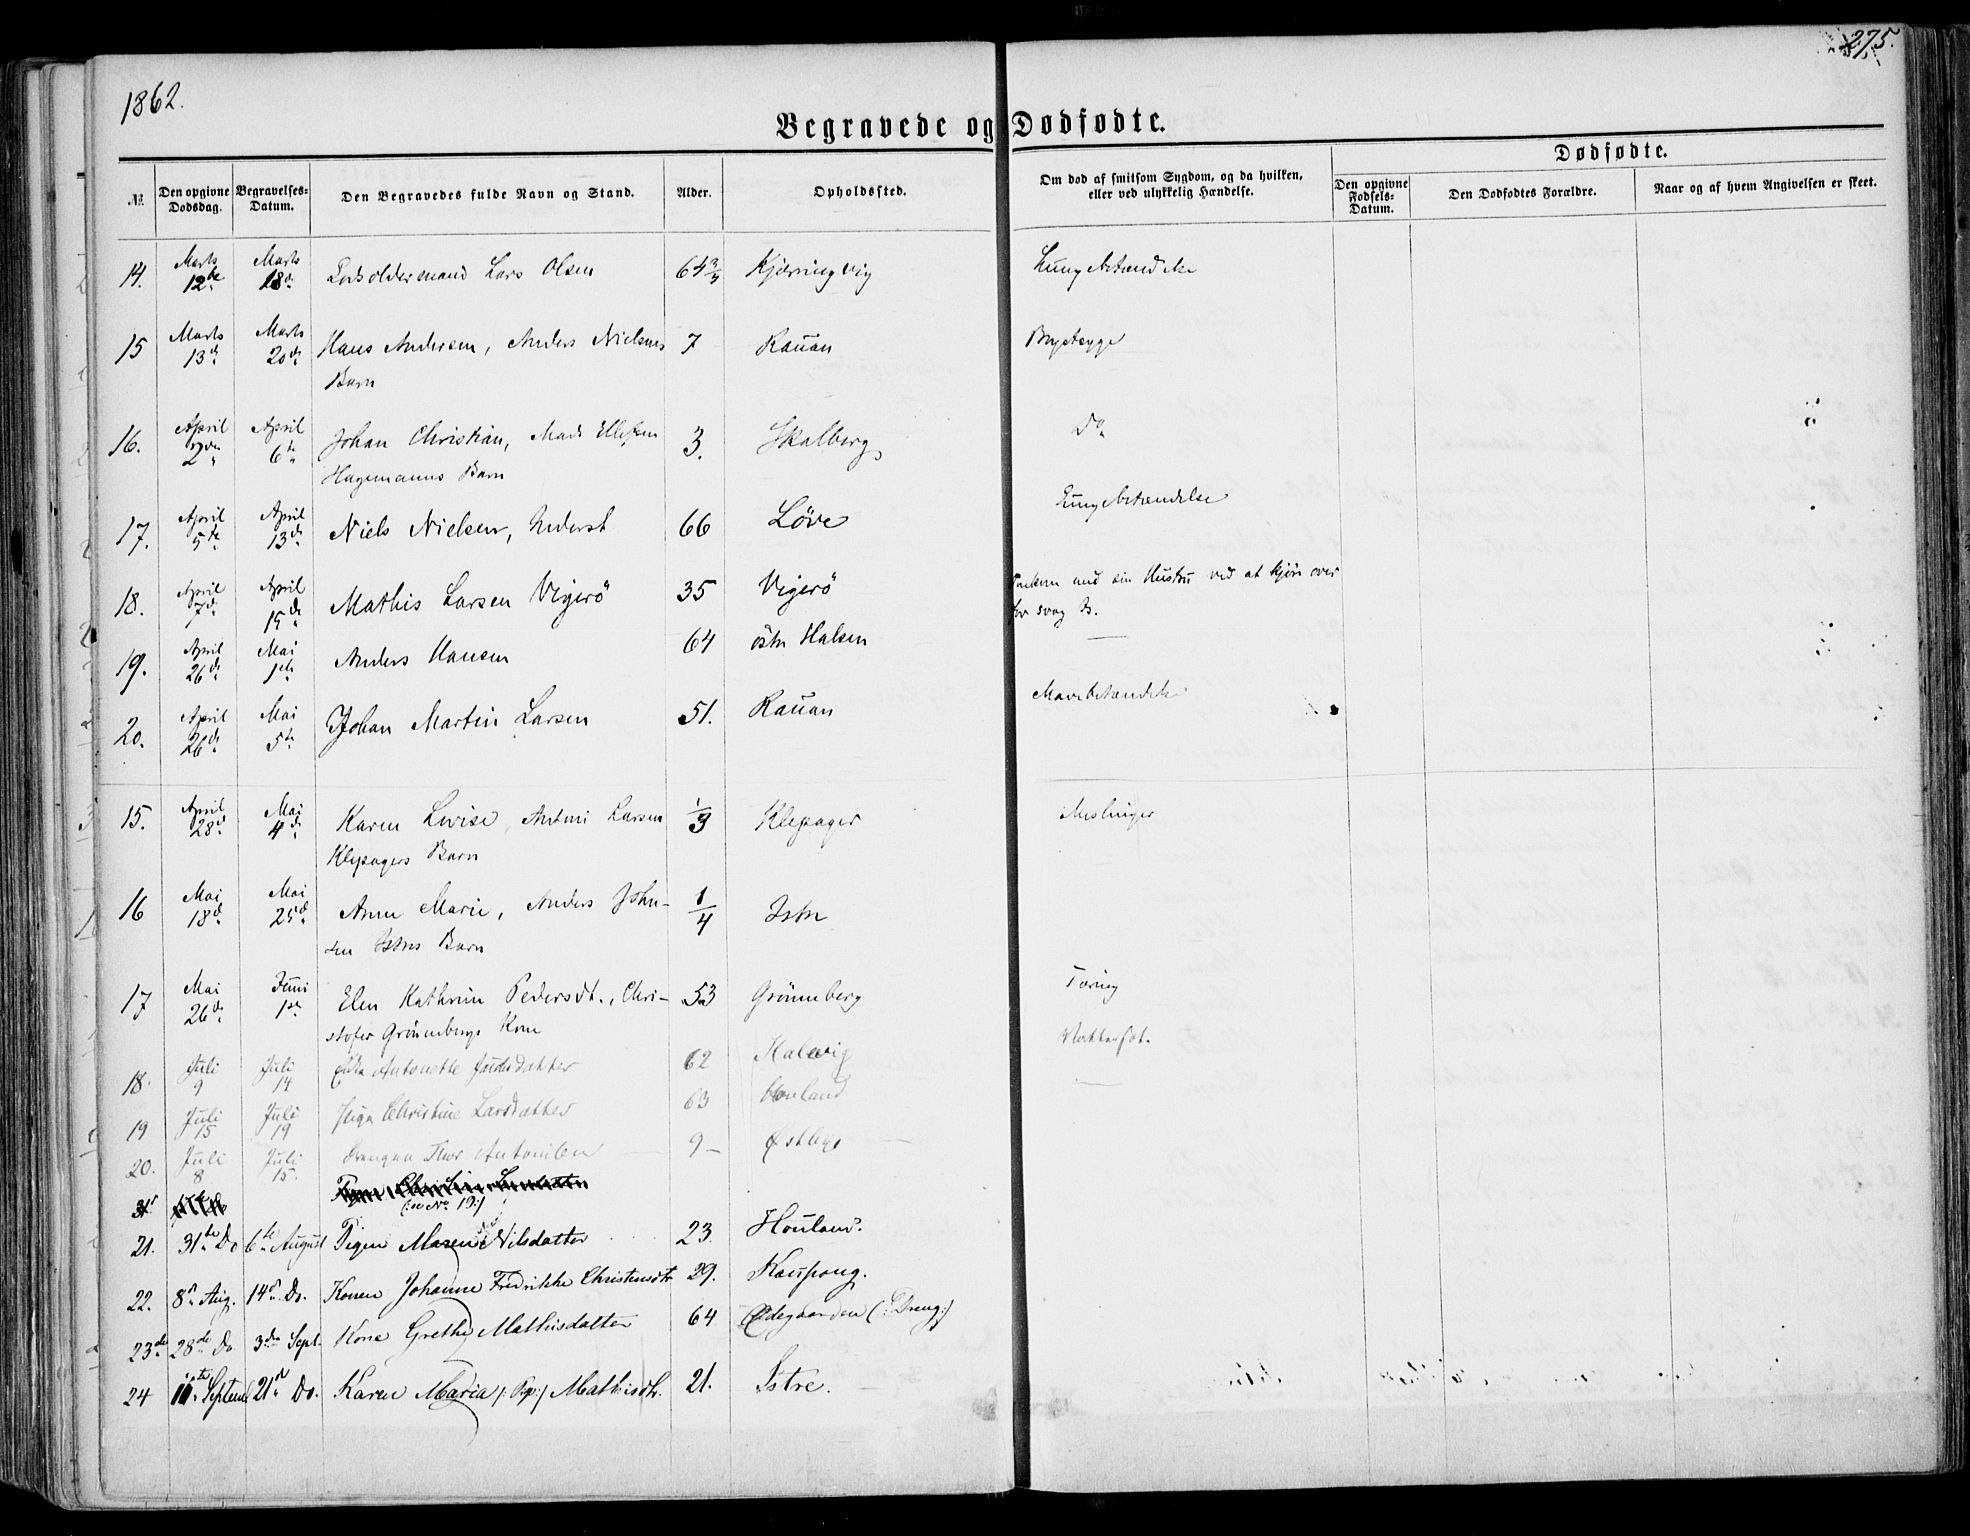 275.
1862.
Begravede og Dødfødte.
Dødfødte.
No. Den opgivne Dødsdag. Begravelses-Datum. Den Begravedes fulde Navn og Stand. Alder. Opholdssted. Om død af smitsom Sygdom, og da hvilken, eller ved ulykkelig Hændelse. Den opgivne Fødsels-Datum. Den Dødfødtes Forældre. Naar og af hvem Angivelsen er skeet.
14. Marts 12te Marts 18d. Lodsoldermand Lars Olsen 64 Kjæringvig Lungebetændelse
15 Marts 13d Marts 20d Hans Andersen, Anders Nielsens 7 Rauan Brystsyge
Barn
16. April 2den April 6te Johan Christian, Mads Ellefsen 3. Skalberg Do
Hagemanns Barn
17. April 5te April 13d Niels Nielsen, Inderst 66 Löve Lungebetændelse
18. April 7d April 15de Mathis Larsen Vigerö 35 Vigerö med sin Hustru ved at kjöre over
for svag Is.
19. April 26d Mai 1ste Anders Hansen 64 östre Halsen —
20. April 26d Mai 5te Johan Martin Larsen 51. Rauan Mavebetændelse
15. April 28d Mai 4d Karen Lovise, Antoni Larsen 1/3 Klepager Meslinger
Klepagers Barn
16 Mai 18d Mai 25d Anne Marie, Anders John- 1/4 Istre
sen Istres Barn
17 Mai 26d Juni 1ste Elen Kathrine Pedersdt., Chri- 53 Grönneberg Tæring
stofer Grönnebergs Kone
18. Juli 9 Juli 14 Enke Antonette 62 Halvrig
19 Juli 15 Juli 19 Pigen Christine Larsdatter 63 Houland —
20. Juli 8 Juli 15. Drengen Thor Antonsen 9 — Østbye —
(: se No 19:)
21. 31te Do 6te August Pigen Maren Nilsdatter 23. Houland.
22. 8de Aug. 14de Do. Konen Johanne Fredrikke Christensdtr 29. Kaupang.
23de 28de Do. 3die Sept. Kone Grethe Mathisdatter 64 Ødegaarden (: Breng:)
24 11te Septem 21de Do. Karen Maria /: Pige:/ Mathisdtr. 21. Istre.